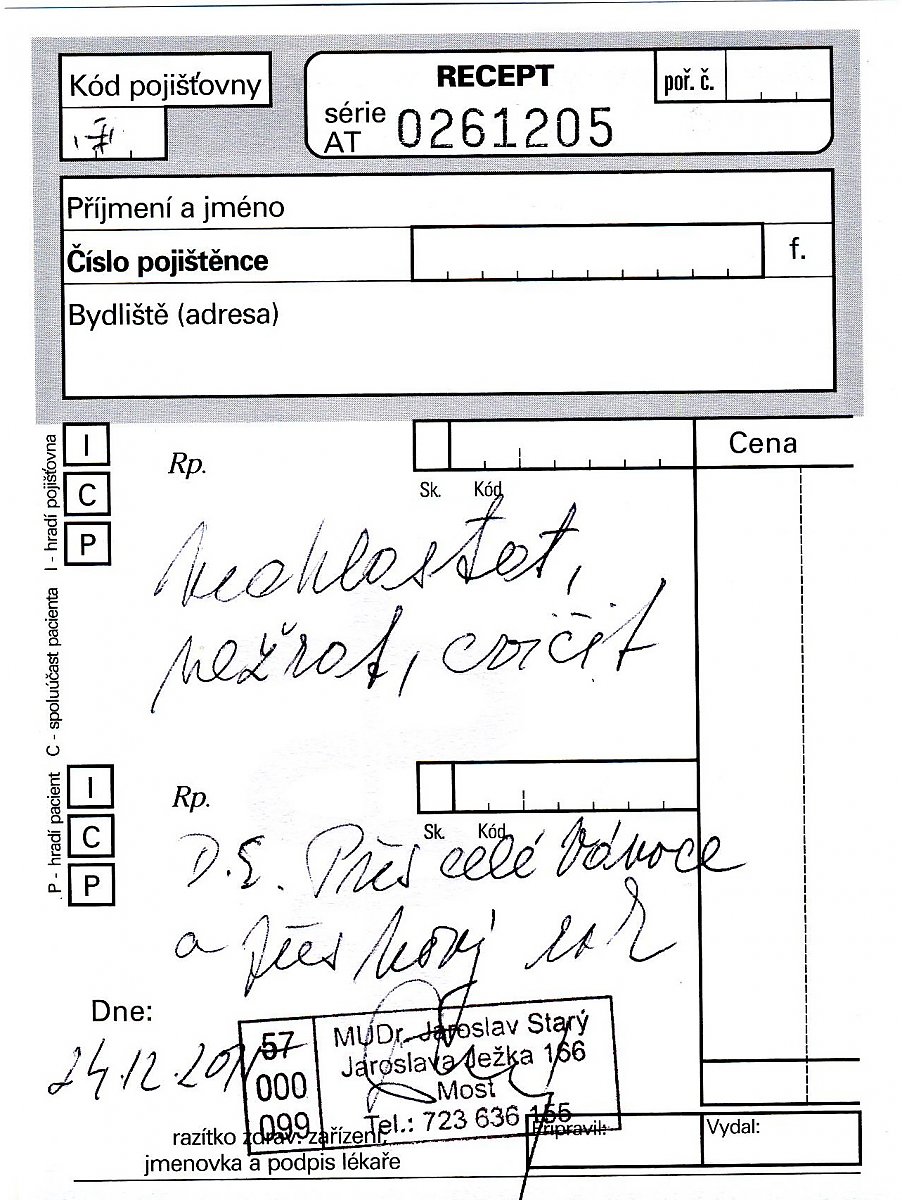 Kód pojišťovny
RECEPT
poř. č.
série
AT 0261205
Příjmení a jméno
Číslo pojištěnce
f.
Bydliště (adresa)
I
C
P
Rp.
Sk. Kód
Cena
nechlastat,
nežrat, cvičit
P - hradí pacient C - spoluúčast pacienta I - hradí pojišťovna
I
C
P
Rp.
Sk. Kód
D.S. Přes celé Vánoce
a přes Nový rok
Dne:
24.12.201
57
000
099
MUDr. Jaroslav Starý
Jaroslava Ježka 166
Most
Tel.: 723 636 155
razítko zdrav. zařízení,
jmenovka a podpis lékaře
Připravil:
Vydal: